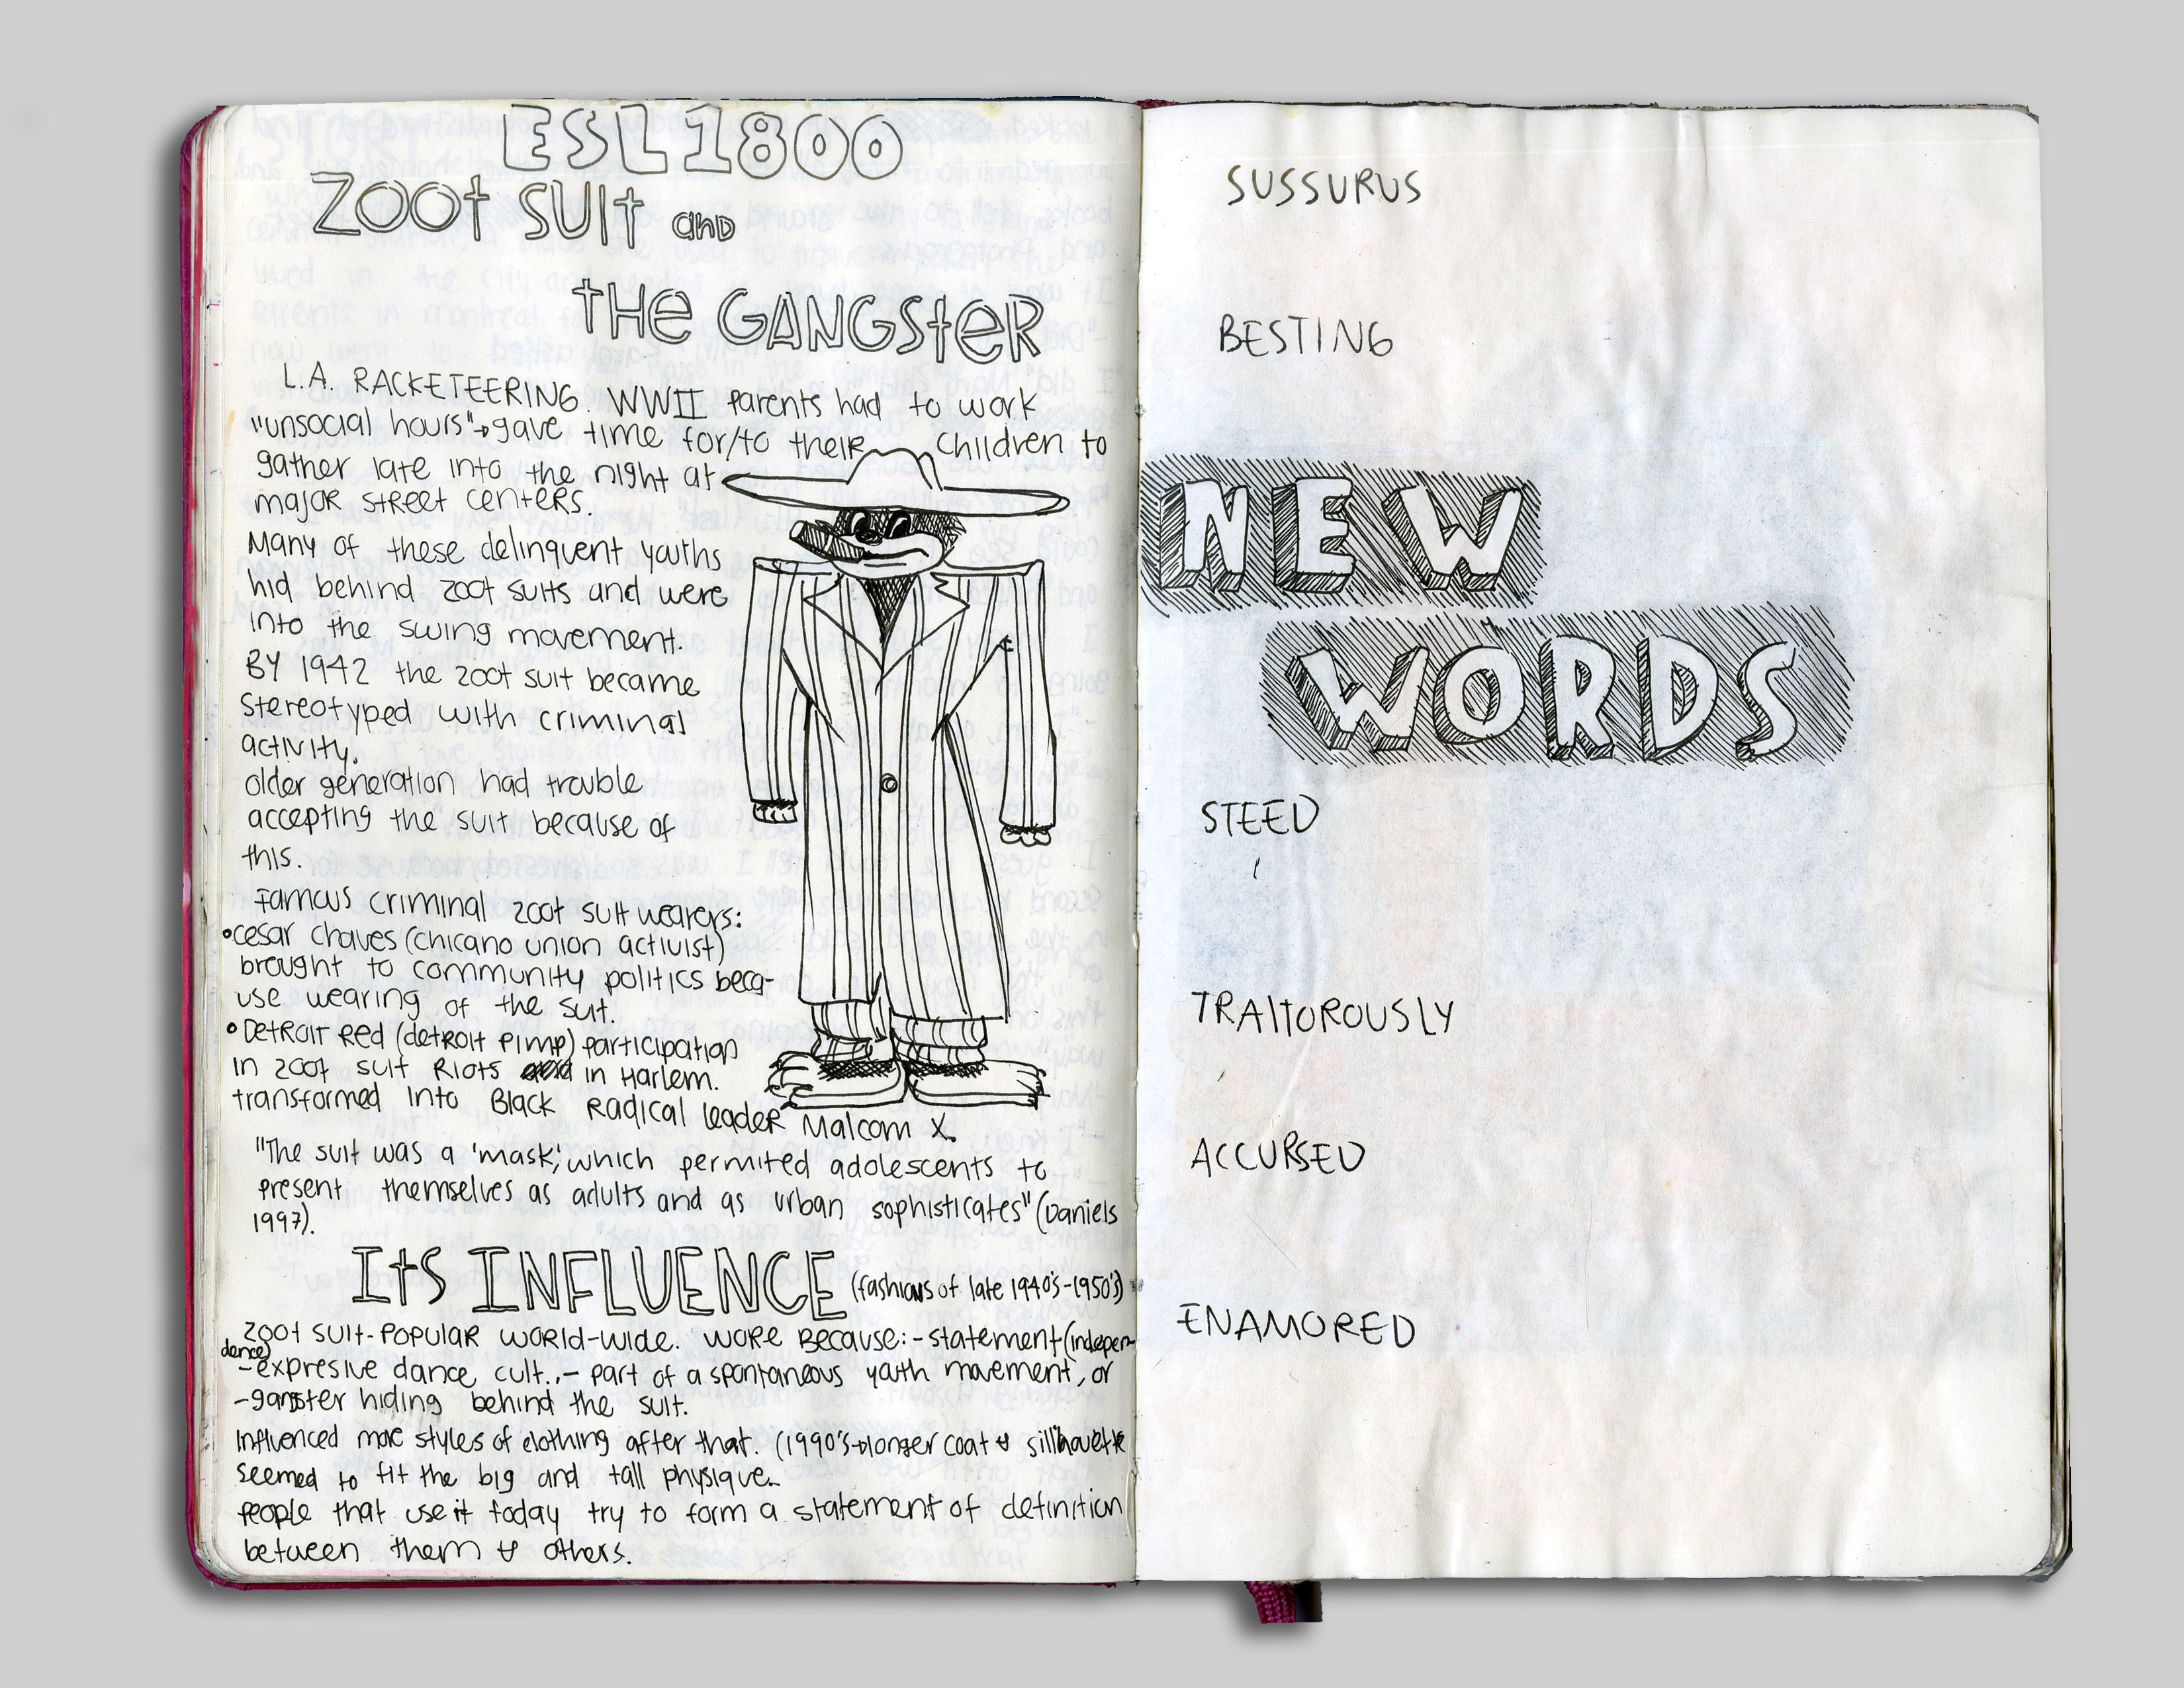 ESL 1800
ZOOt SUIt and
tHe GANGSteR
L.A. RACKETEERING. WWII parents had to work
"unsocial hours"→gave time for/to their children to
gather late into the night at
major street centers.
Many of these delinquent youths
hid behind zoot suits and were
into the swing movement.
BY 1942 the zoot suit became
stereotyped with criminal
activity.
older generation had trouble
accepting the suit because of
this.
Famous criminal zoot suit wearers:
•cesar chaves (chicano union activist)
brought to community politics beca-
use wearing of the suit.
•Detroit Red (detroit pimp) participation
in zoot suit Riots in Harlem.
transformed into Black Radical leader Malcom X.
"The suit was a 'mask', which permited adolescents to
present themselves as adults and as urban sophisticates" (Daniels
1997).
ItS INFLUENCE (fashions of late 1940's-1950's)
zoot suit-popular world-wide. wore because: -statement (indepen-
dance)
-expresive dance cult., - part of a spontaneous youth movement, or
-gangster hiding behind the suit.
Influenced more styles of clothing after that. (1990's→longer coat & sillhouette
seemed to fit the big and tall physique.
people that use it today try to form a statement of definition
between them & others.
SUSSURUS
BESTING
NEW
WORDS
STEED
TRAITOROUSLY
ACCURSED
ENAMORED